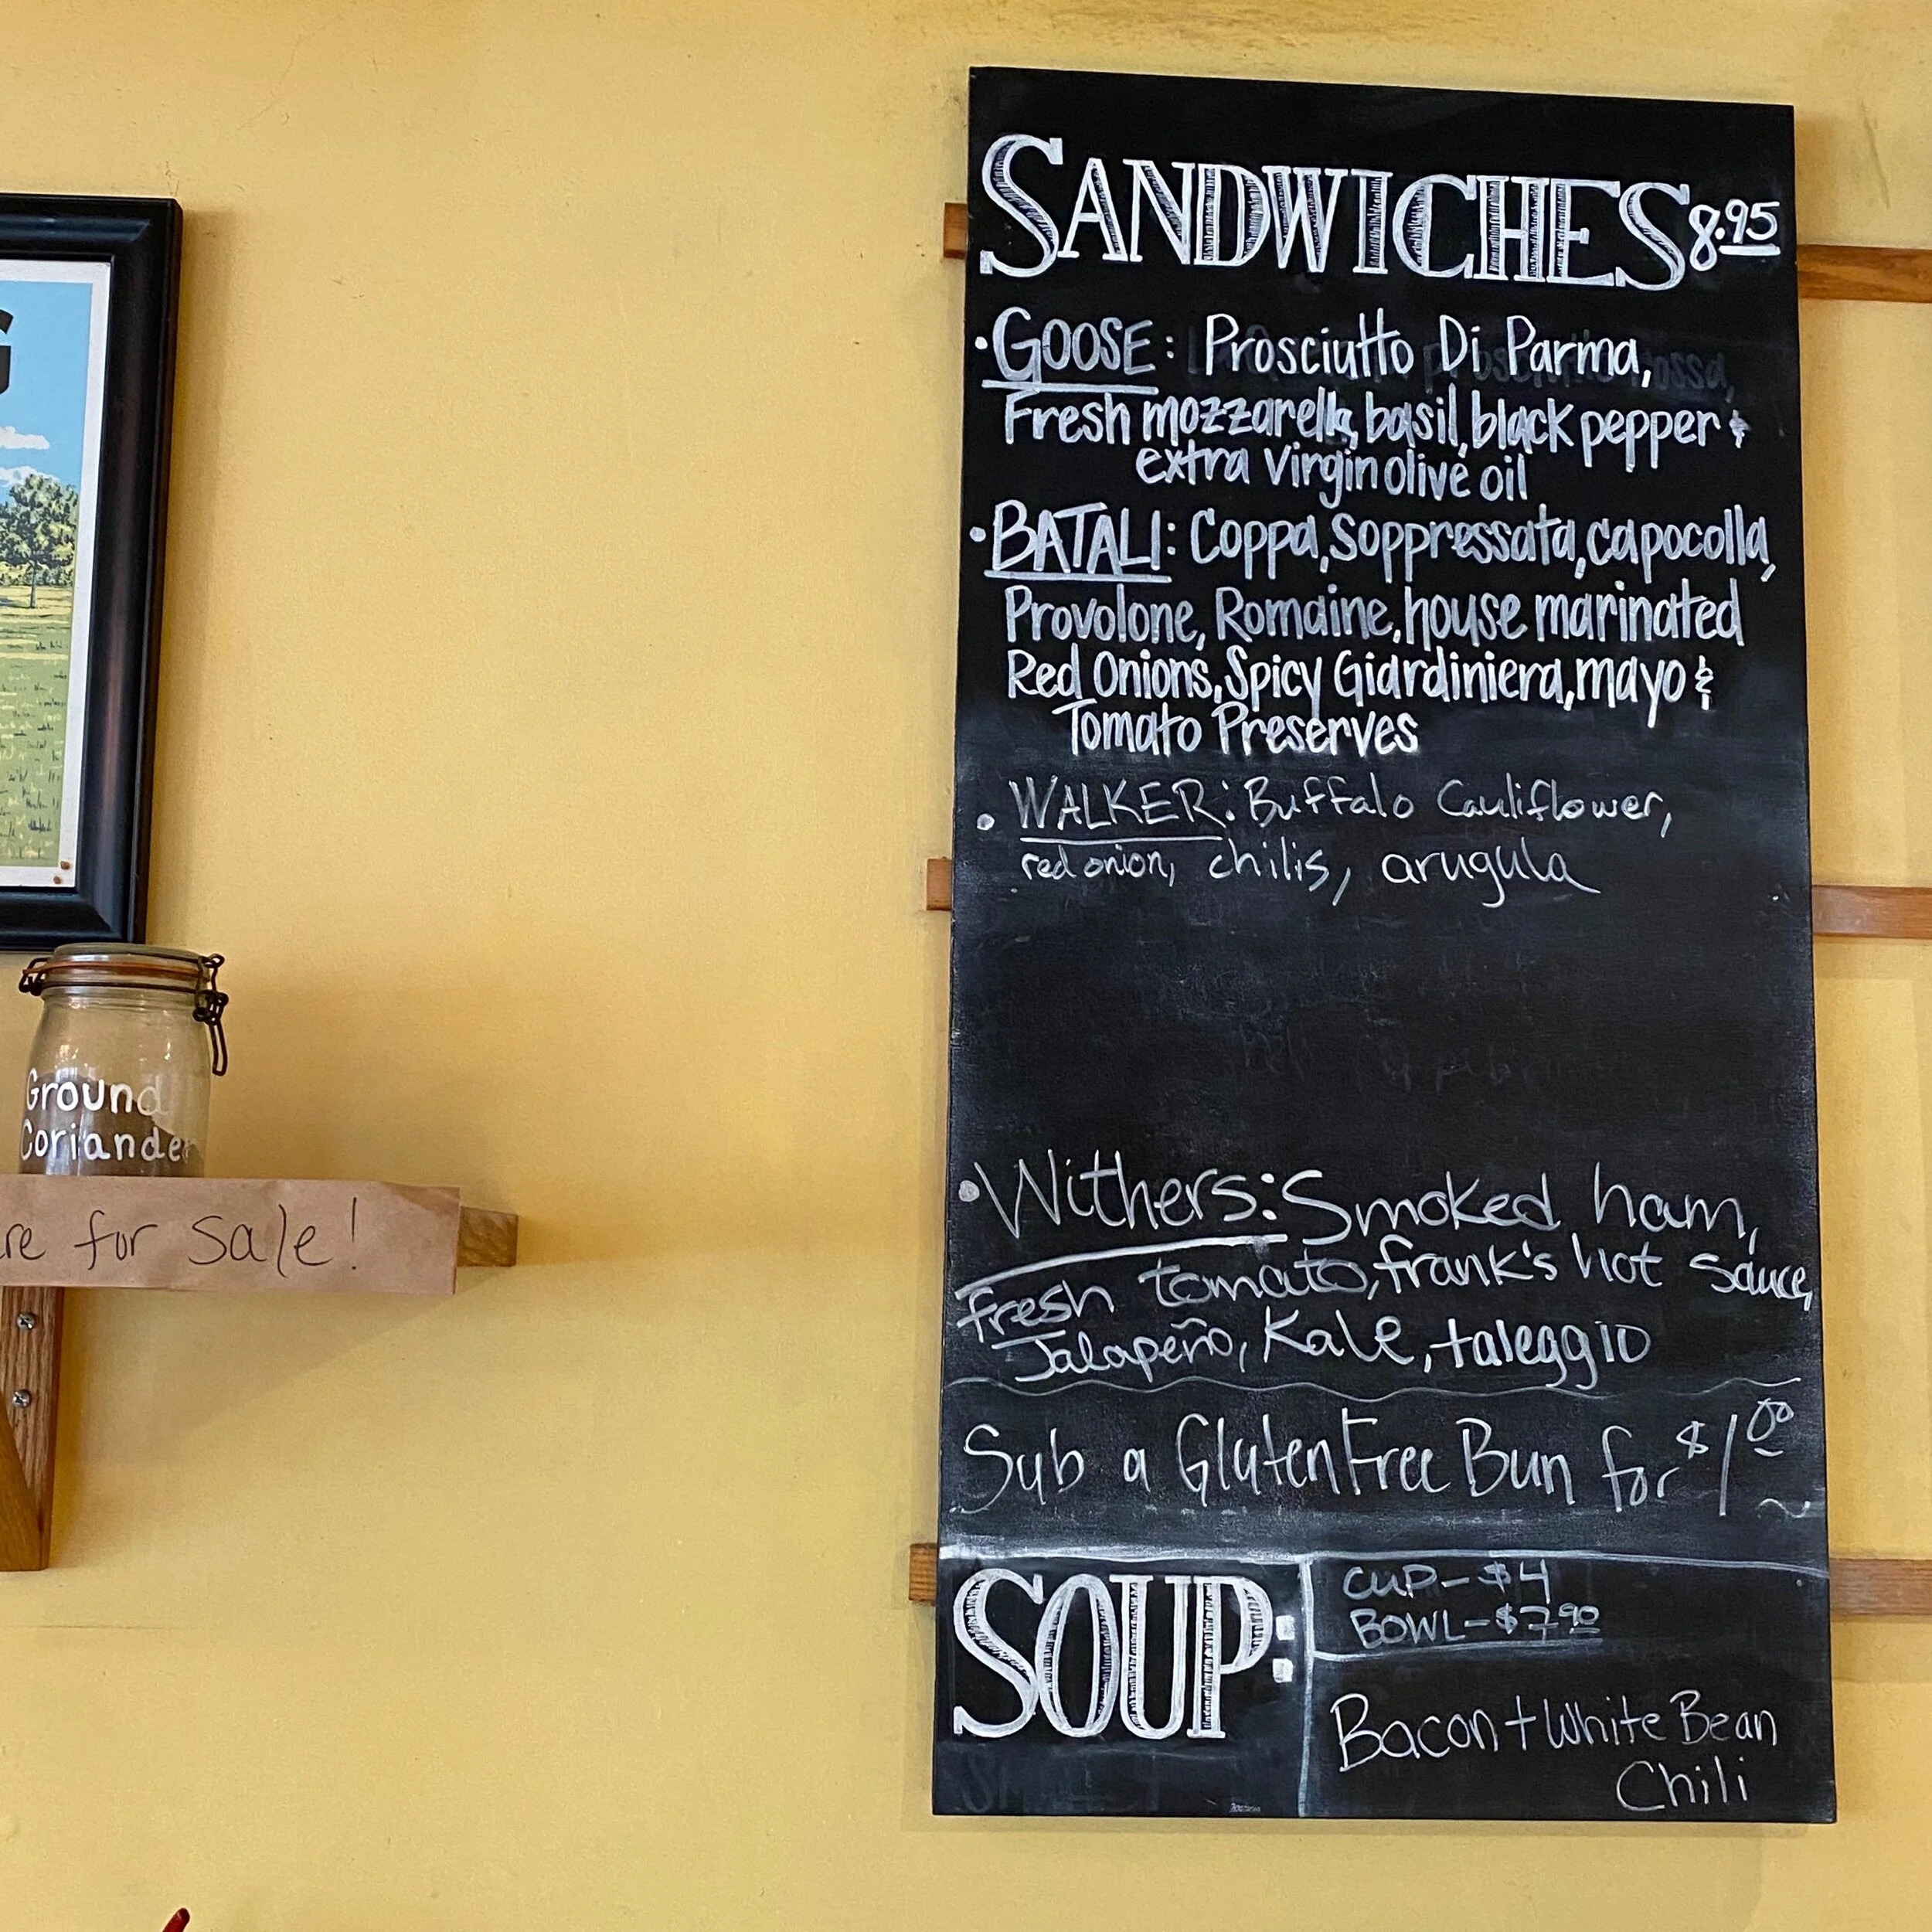 G
Ground
Coriander
re for sale!
SANDWICHES 8.95
• GOOSE: Prosciutto Di Parma,
Fresh mozzarella, basil, black pepper &
extra virgin olive oil
• BATALI: Coppa, Soppressata, capocolla,
Provolone, Romaine, house marinated
Red Onions, Spicy Giardiniera, mayo &
Tomato Preserves
• WALKER: Buffalo Cauliflower,
red onion, chilis, arugula
• Withers: Smoked ham,
Fresh tomato, frank's hot sauce,
Jalapeño, Kale, taleggio
Sub a Gluten Free Bun for $1.00
SOUP:
CUP - $4
BOWL - $7.90
Bacon + White Bean
Chili